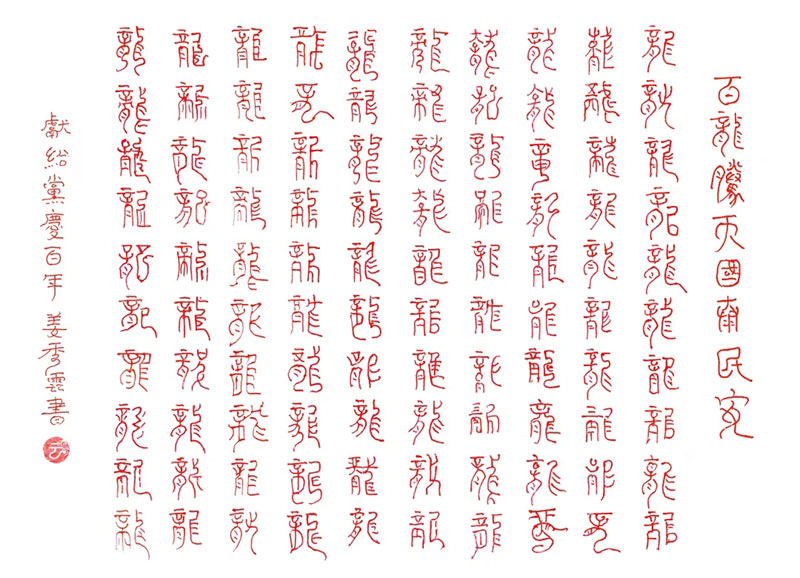 百龍騰天國泰民安
龍龍龍龍龍龍龍龍龍龍
龍龍龍龍龍龍龍龍龍龍
龍龍龍龍龍龍龍龍龍龍
龍龍龍龍龍龍龍龍龍龍
龍龍龍龍龍龍龍龍龍龍
龍龍龍龍龍龍龍龍龍龍
龍龍龍龍龍龍龍龍龍龍
龍龍龍龍龍龍龍龍龍龍
龍龍龍龍龍龍龍龍龍龍
龍龍龍龍龍龍龍龍龍龍
獻給黨慶百年 姜秀雲書